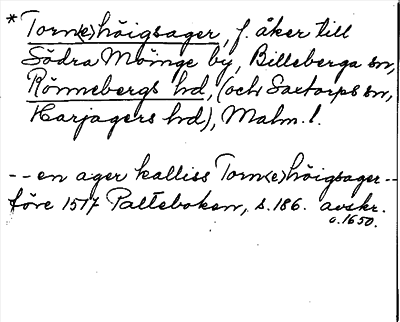 * Torn<e>höigsager, f. åker till
Södra Möinge by, Billeberga sn,
Rönnebergs hd, (och Saxtorps sn,
Harjagers hd), Malm. l.
-- en ager kalliss Torn<e>höigsager --
före 1517 Palteboken, s. 186. avskr.
c. 1650.